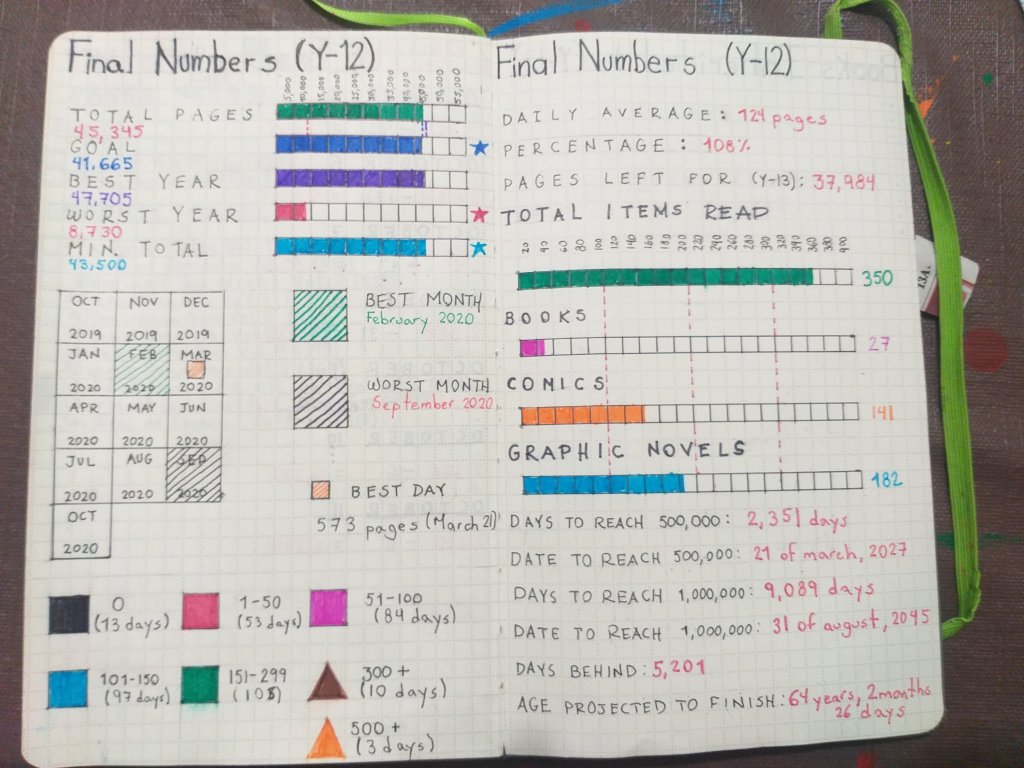 Final Numbers (Y-12)
5,000 10,000 15,000 20,000 25,000 30,000 35,000 40,000 45,000 50,000 55,000
TOTAL PAGES
45,345
GOAL
41,665
BEST YEAR
47,705
WORST YEAR
8,730
MIN. TOTAL
43,500
OCT NOV DEC
2019 2019 2019
JAN FEB MAR
2020 2020 2020
APR MAY JUN
2020 2020 2020
JUL AUG SEP
2020 2020 2020
OCT
2020
BEST MONTH
February 2020
WORST MONTH
September 2020
BEST DAY
573 pages (March 21)
0
(13 days)
1-50
(53 days)
51-100
(84 days)
101-150
(97 days)
151-299
300+
(10 days)
500+
(3 days)
Final Numbers (Y-12)
DAILY AVERAGE: 124 pages
PERCENTAGE: 108%
PAGES LEFT FOR (Y-13): 37,984
TOTAL ITEMS READ
20 40 60 80 100 120 140 160 180 200 220 240 260 280 300 320 340 360 380 400
350
BOOKS
27
COMICS
141
GRAPHIC NOVELS
182
DAYS TO REACH 500,000: 2,351 days
DATE TO REACH 500,000: 21 of march, 2027
DAYS TO REACH 1,000,000: 9,089 days
DATE TO REACH 1,000,000: 31 of august, 2045
DAYS BEHIND: 5,201
AGE PROJECTED TO FINISH: 64 years, 2 months
26 days